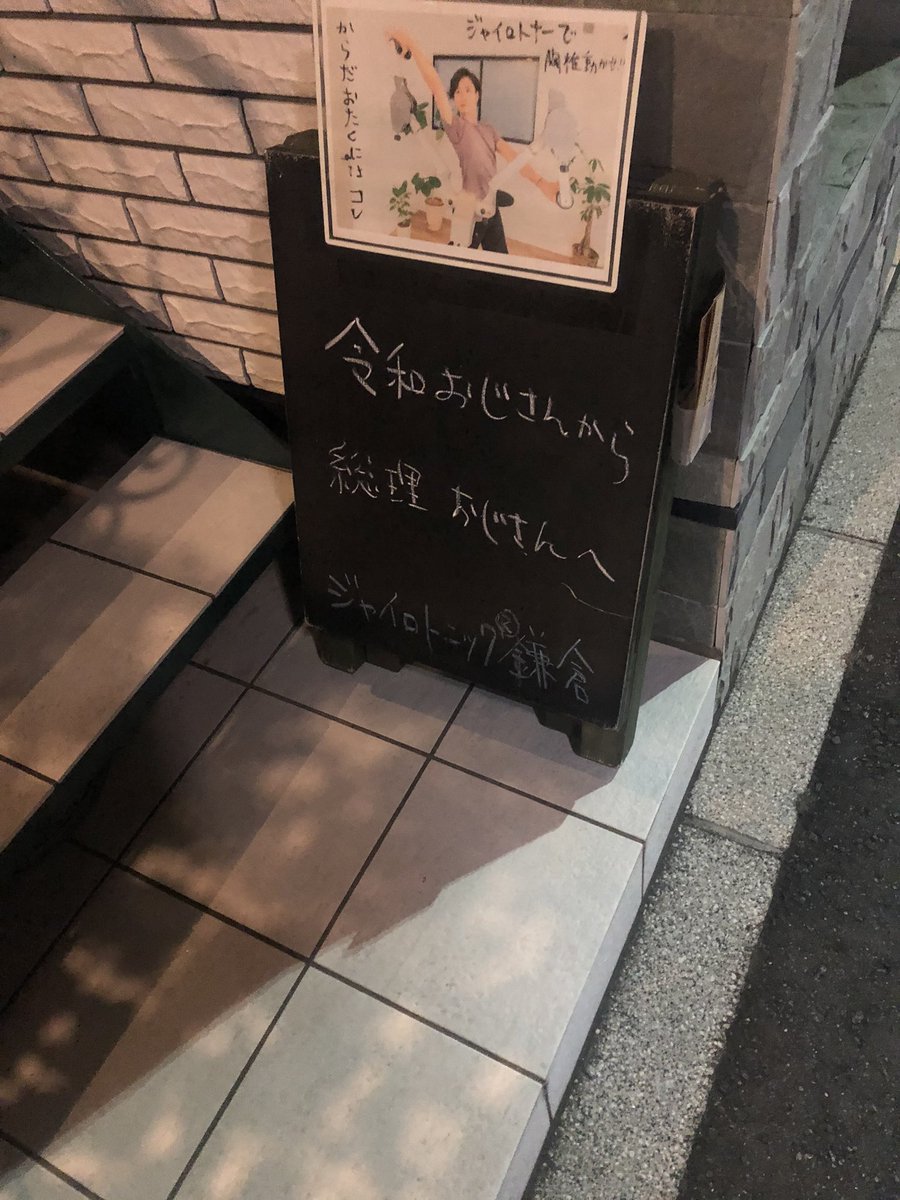 ジャイロトナーで
胸椎動かせ!!
からだおたくにはコレ
令和おじさんから
総理おじさんへ
ジャイロトニック®鎌倉